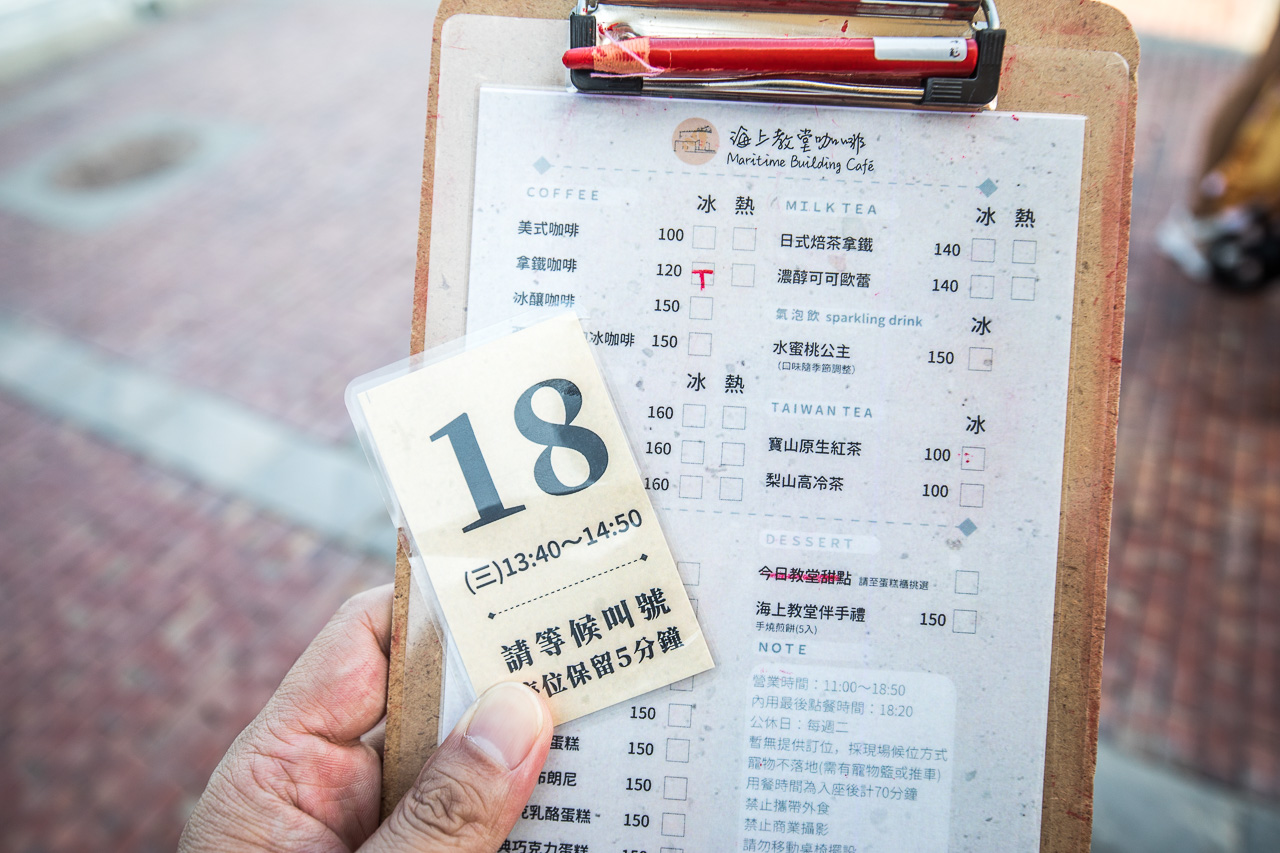 海上教堂咖啡
Maritime Building Café
COFFEE
冰 熱
美式咖啡 100
拿鐵咖啡 120 T
冰釀咖啡 150
冰咖啡 150
冰 熱
160
160
160
MILK TEA
冰 熱
日式焙茶拿鐵 140
濃醇可可歐蕾 140
氣泡飲 sparkling drink
冰
水蜜桃公主 150
(口味隨季節調整)
TAIWAN TEA
冰
寶山原生紅茶 100
梨山高冷茶 100
DESSERT
今日教堂甜點 請至蛋糕櫃挑選
海上教堂伴手禮 150
手燒煎餅(5入)
NOTE
營業時間：11:00～18:50
內用最後點餐時間：18:20
公休日：每週二
暫無提供訂位，採現場候位方式
寵物不落地(需有寵物籃或推車)
用餐時間為入座後計70分鐘
禁止攜帶外食
禁止商業攝影
請勿移動桌椅擺設
18
(三)13:40～14:50
請等候叫號
位保留5分鐘
150
蛋糕 150
布朗尼 150
克乳酪蛋糕 150
典巧克力蛋糕 150